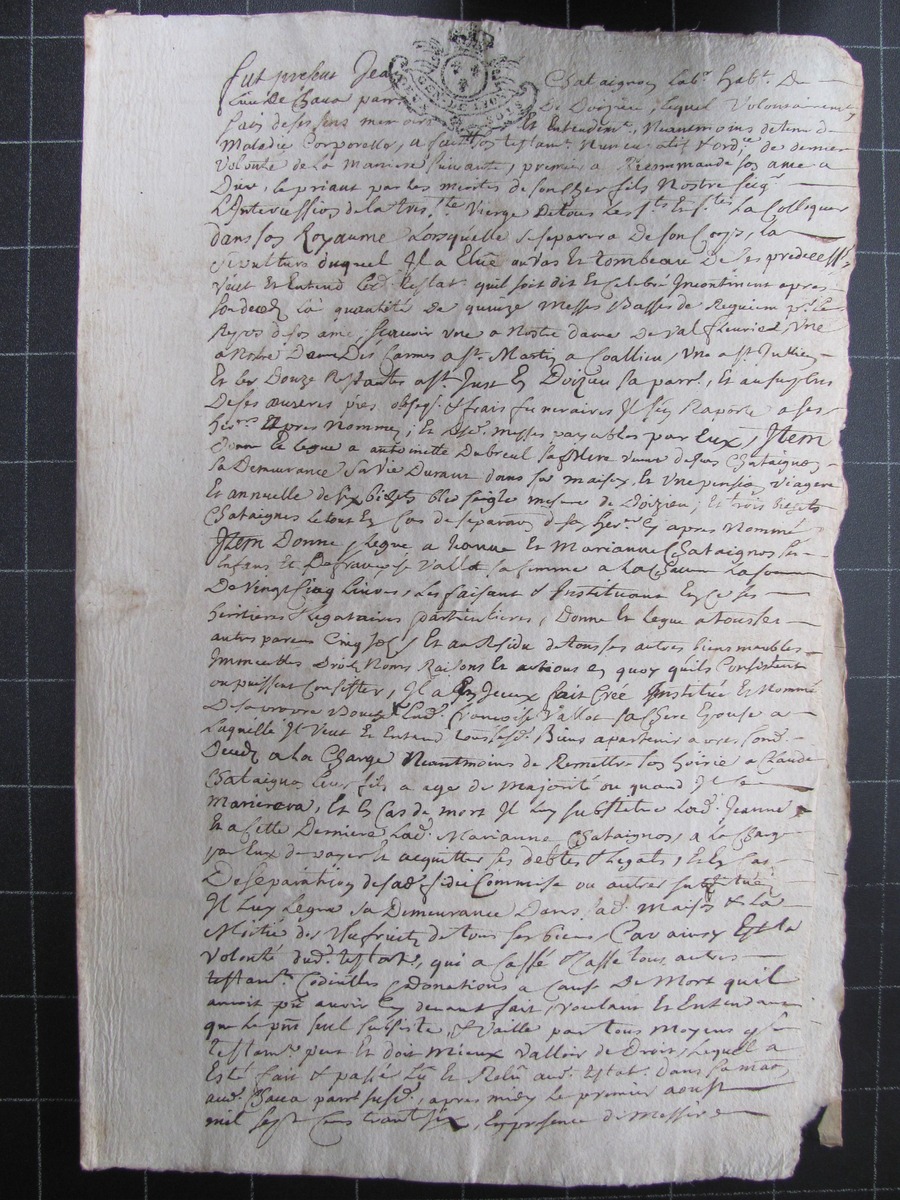 fut present Jea Chataignon Lab.r hab.t De
Lieu De Chava parr De Doizieu, lequel Volontairement
Sain de ses sens memoire Et Entendem.t, Neantmoins detenu de
Maladie Corporelle, a fait son testam.t Nuncupatif & ord.re de derniere
Volonté de la Maniere suivante, premier a Recommandé son ame a
Dieu, le priant par les merites de son cher fils Nostre Seig.r
L'Intercession de la tres S.te Vierge De tous les S.ts et S.tes La Colloquer
dans son Royaume Lorsqu'elle se separera De son Corps, La
sepulture duquel Il a Elue au vas Et tombeau De ses predecess.rs
Veut et Entend led. Testat.r quil soit dit Et Celebré Incontinent apres
son decedz la quantité De quinze Messes Basses de Requiem p.r Le
Repos de son ame, scavoir Une a Nostre dame De Valfleuried, Une
a Notre Dame Des Carmes a S.t Martin a Coallieu, Une a S.t Jullien
Et les Douze Restantes a S.t Just En Doizieu sa parr., Et au surplus
De ses œuvres pies obseq. & frais funeraires Il s'En Raporte a ses
her.rs Cy apres Nommez; Et lesd. Messes payables par Eux, Item
Donne Et legue a antoinette Dubreul sa Mere veuve de Chataignon
sa Demeurance sa vie Durant dans sa maison, Et Une pension viagere
Et annuelle de six bichets bled seigle mesure de Doizieu; Et trois bichets
Chataignes le tout En Cas de separaon d'Et son her.re Cy apres Nommé
Item Donne, & legue a Jeanne Et Marianne Chataignon ses
Enfans Et De françoise Vallot sa femme a la Chacune La somme
De Vingt Cinq Livres, Les faisant & Instituant En Ce ses
heritieres & legataires particulieres, Donne Et Legue a tous ses
autres parens Cinq sols, Et au Residu de tous ses autres biens meubles
Immeubles Droits Noms Raisons Et actions en quoy quils Consistent
ou puissent Consister, Il a fait Créé Institué Et Nommé
De sa propre Bouche Lad. françoise Vallot sa Chere Epouse a
Laquelle Il Veut Et Entend tous sesd. Biens apartenir apres sond.
Decedz a la Charge Neantmoins de Remettre son hoirie a Claude
Chataignon leur fils a age de Majorité ou quand Il se
Marierera, Et En Cas de mort Il luy substitue Lad. Jeanne
Et a Cette Derniere Lad. Marianne Chataignon, a La Charge
par Eux de payer Et acquitter ses debtes & Legats, Et En Cas
De separation de sad. fidei Commise ou autres substituéz
Il luy Legue sa Demeurance Dans sad. Maison & La
Moitié des Usufruits de tous ses biens, Car ainsy Est la
Volonté dud. testat.r, qui a Cassé & Casse tous autres
testam.ts Codicilles & donations a Cause De Mort quil
auroit pû avoir Cy devant fait, voulant Et Entendant
que le p.nt seul subsiste, & Vaille par tous Moyens que
testam.t peut Et doit Mieux Valloir de Droit, lequel a
Esté fait & passé Lû Et Relû aud. Testat.r dans sa mai.on
aud. Chava parr susd., apres midy le premier aoust
mil sept Cens trante six, En presence de Messire
GEN. DE LYON